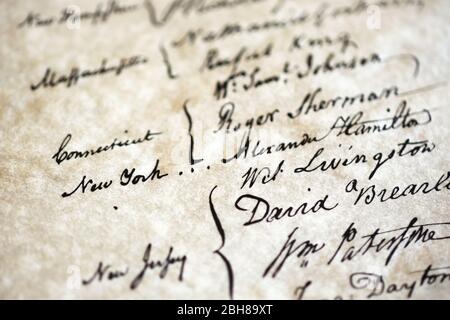 New Hampshire {
Massachusetts { Nathaniel Gorham
Rufus King
Connecticut { Wm. Saml. Johnson
Roger Sherman
New York . . . Alexander Hamilton
New Jersey { Wil. Livingston
David Brearley
Wm. Paterson
Dayton
alamy
Image ID: 2BH89XT
www.alamy.com